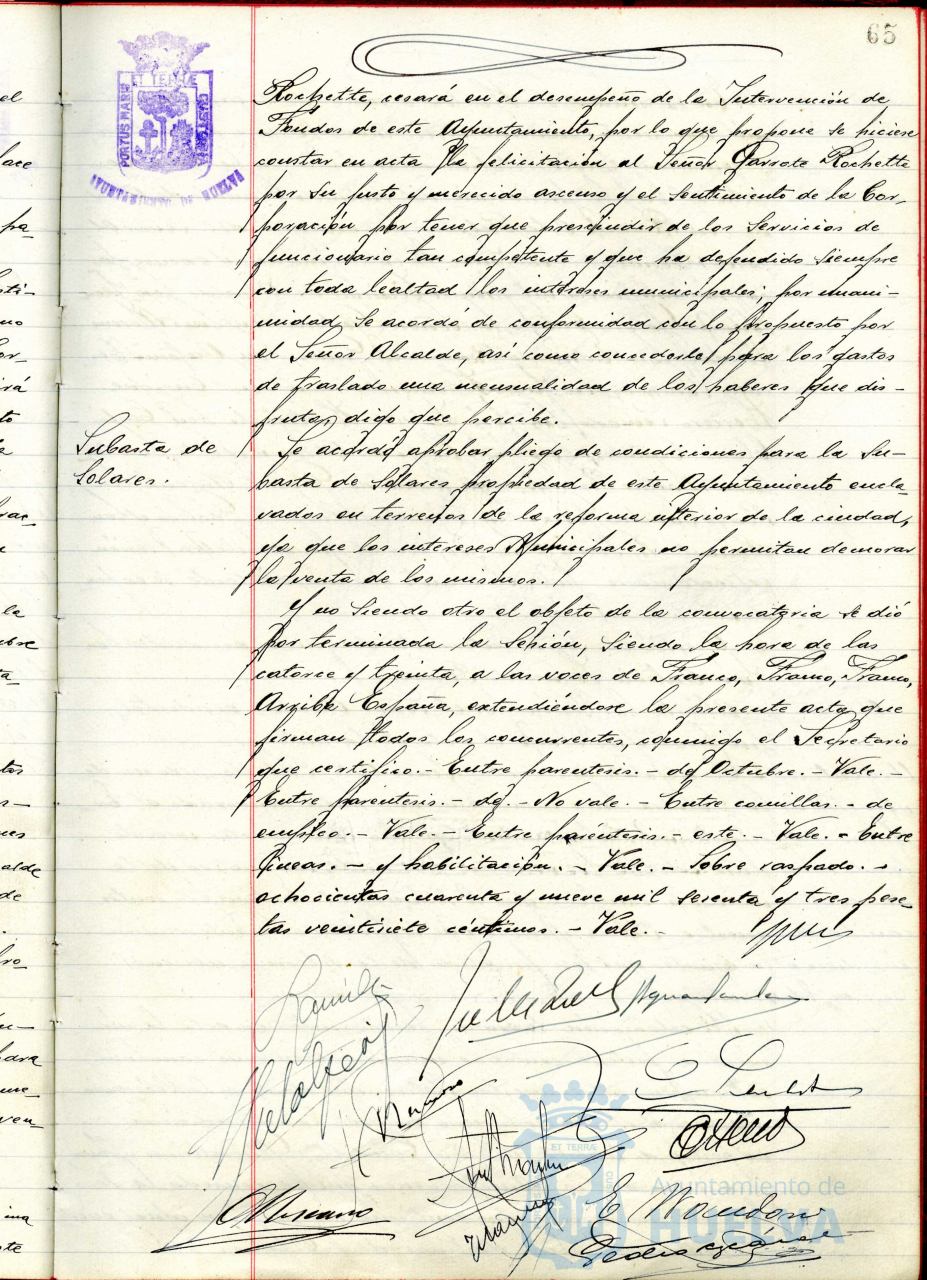 65
ET TERRÆ
PORTUS MARIS
CUSTODIA
AYUNTAMIENTO DE HUELVA
Rochette, cesará en el desempeño de la Intervención de
Fondos de este Ayuntamiento, por lo que propone se hiciese
constar en acta la felicitación al Señor Garrote Rochette
por su justo y merecido ascenso y el sentimiento de la Cor-
poración por tener que prescindir de los Servicios de
funcionario tan competente y que ha defendido siempre
con toda lealtad los intereses municipales; por unani-
midad se acordó de conformidad con lo propuesto por
el Señor Alcalde, así como concederle para los gastos
de traslado una mensualidad de los haberes que dis-
fruta, digo que percibe.
Subasta de
Solares.
Se acordó aprobar pliego de condiciones para la Su-
basta de Solares propiedad de este Ayuntamiento encla-
vados en terrenos de la reforma interior de la ciudad,
ya que los intereses Municipales no permitan demorar
la venta de los mismos.
Y no siendo otro el objeto de la convocatoria se dió
por terminada la Sesión, siendo la hora de las
catorce y treinta, a las voces de Franco, Franco, Franco,
Arriba España, extendiéndose la presente acta que
firman todos los concurrentes, conmigo el Secretario
que certifico.- Entre parentesis.- de Octubre.- Vale.-
Entre parentesis.- de.- No vale.- Entre comillas.- de
empleo.- Vale.- Entre paréntesis.- este.- Vale.- Entre
lineas.- y habilitación.- Vale.- Sobre raspado.-
ochocientas cuarenta y nueve mil sesenta y tres pese-
tas veintisiete céntimos.- Vale.-
ET TERRÆ
Ayuntamiento de
HUELVA